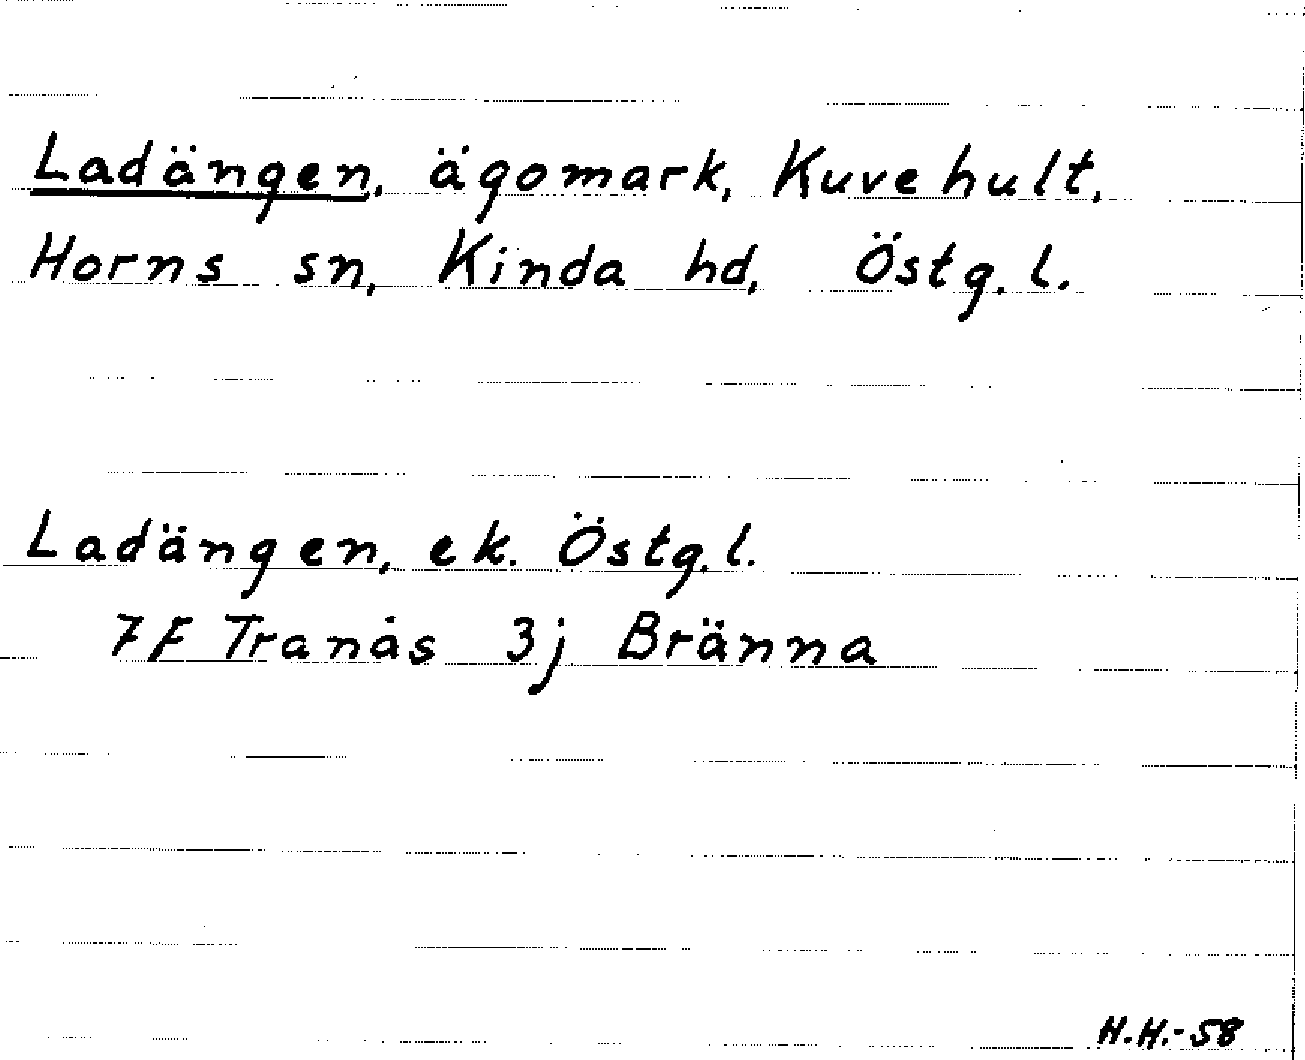 Ladängen, ägomark, Kuvehult,
Horns sn, Kinda hd, Östg. l.
Ladängen, ek. Östg. l.
7F Tranås 3j Bränna
H.H.-58